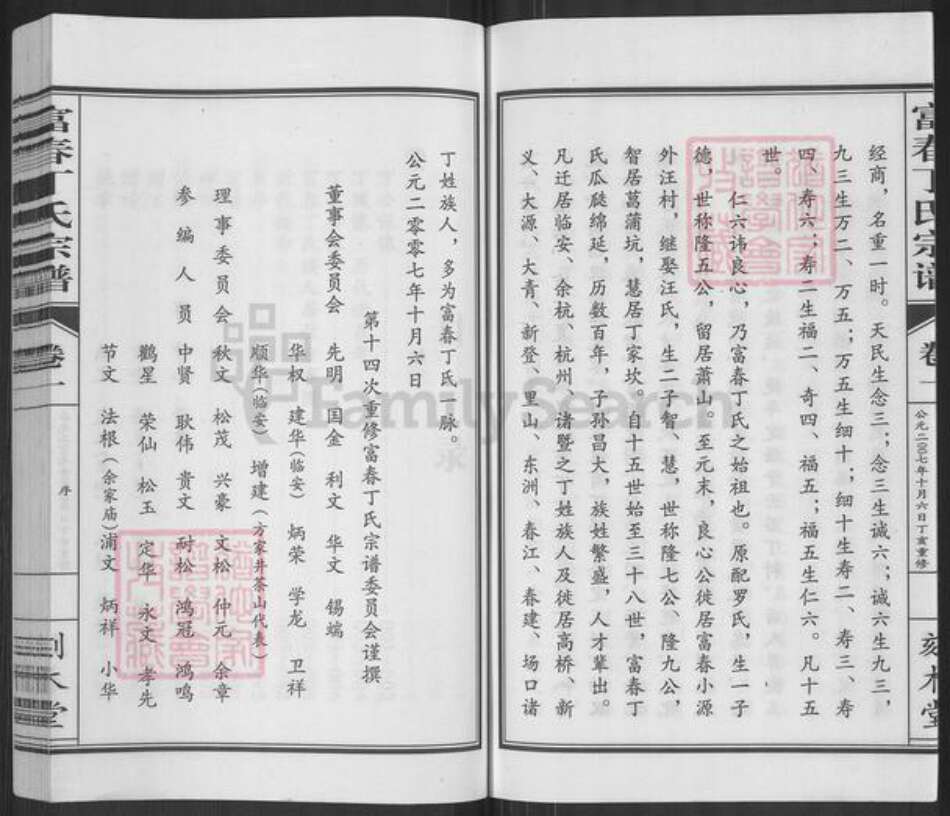 富春丁氏宗谱
卷一
公元二〇〇七年十月六日丁亥重修
刻木堂
经商，名重一时。天民生念三；念三生诚六；诚六生九三，
九三生万二、万五；万五生细十；细十生寿二、寿三、寿
四、寿六；寿二生福二、奇四、福五；福五生仁六。凡十五
世。
仁六讳良心，乃富春丁氏之始祖也。原配罗氏，生一子
德，世称隆五公，留居萧山。至元末，良心公徙居富春小源
外汪村，继娶汪氏，生二子智、慧，世称隆七公、隆九公，
智居菖蒲坑，慧居丁家坎。自十五世始至三十八世，富春丁
氏瓜瓞绵延，历数百年，子孙昌大，族姓繁盛，人才辈出。
凡迁居临安、余杭、杭州、诸暨之丁姓族人及徙居高桥、新
义、大源、大青、新登、里山、东洲、春江、春建、场口诸
丁姓族人，多为富春丁氏一脉。
公元二零零七年十月六日
第十四次重修富春丁氏宗谱委员会谨撰
董事会委员会 先明 国金 利文 华文 锡煸
华权 建华（临安） 炳荣 学龙 卫祥
顺华（临安） 增建（方家井茶山代表）
理事委员会 秋文 松茂 兴豪 文松 仲元 余章
参编人员 中贤 耿伟 贵文 耐松 鸿冠 鸿鸣
鹳星 荣仙 松玉 定华 永文 孝先
节文 法根（余家庙） 浦文 炳祥 小华
富春丁氏宗谱
卷一
序
刻木堂
FamilySearch